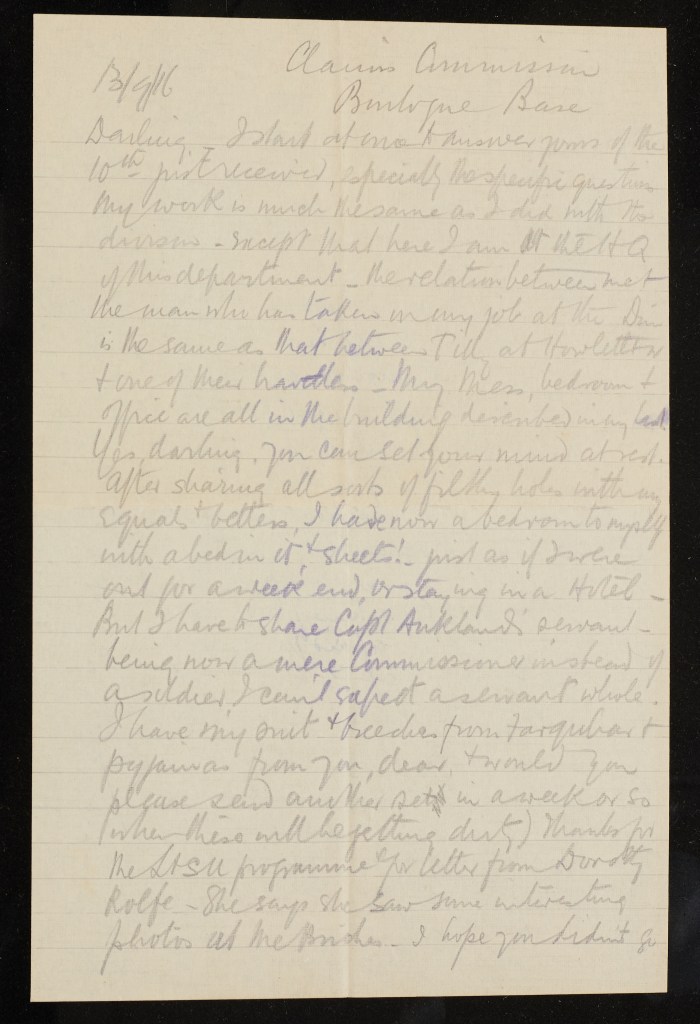 13/9/16
Claims Commission
Boulogne Base
Darling - I start at once to answer yours of the
10th just received, especially the specific questions
My work is much the same as I did with the
division - except that here I am at the HQ
of this department - the relation between me &
the man who has taken on my job at the Divn
is the same as that between Tilly at Howletts &
& one of their - My Mess, bedroom &
office are all in the building described in my last.
Yes, darling, you can set your mind at rest.
After sharing all sorts of filthy holes with my
equals & betters, I have now a bedroom to myself
with a bed in it, & sheets! - just as if I were
out for a week end, or staying in a Hotel -
But I have to share Capt Aukland's servant -
being now a mere Commissioner instead of
a soldier I can't expect a servant whole.
I have my suit & breeches from Farquhar &
pyjamas from you, dear, & would you
please send another set in a week or so
(when these will be getting dirty) Thanks for
the programme & for letter from Dorothy
Rolfe - She says she saw some interesting
photos at the - I hope you didn't go